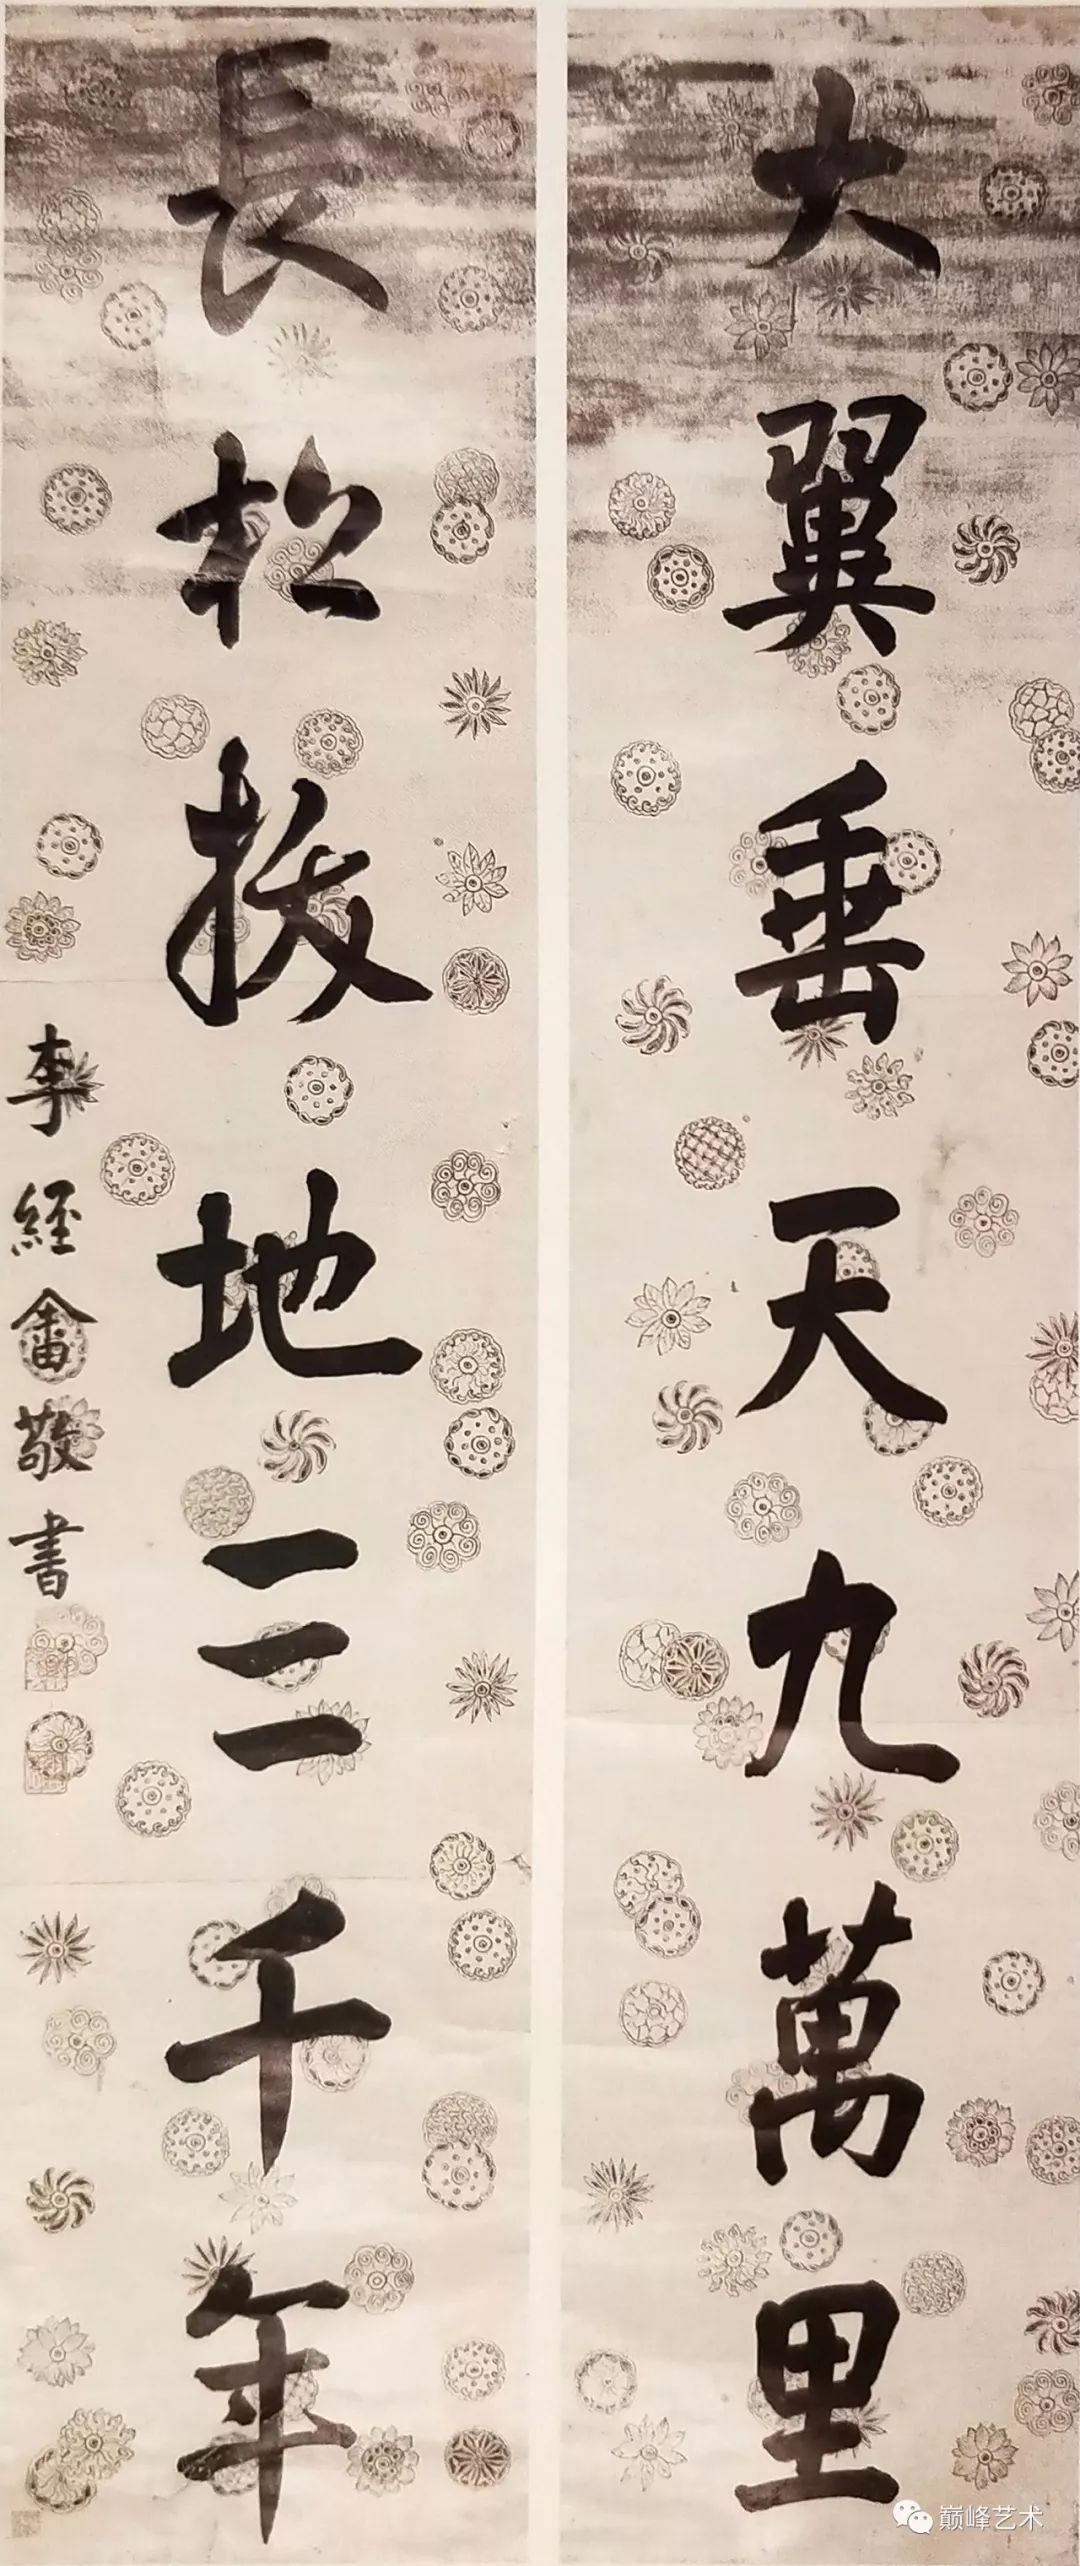 大翼垂天九萬里
長松拔地三千年
李經畬敬書
巅峰艺术